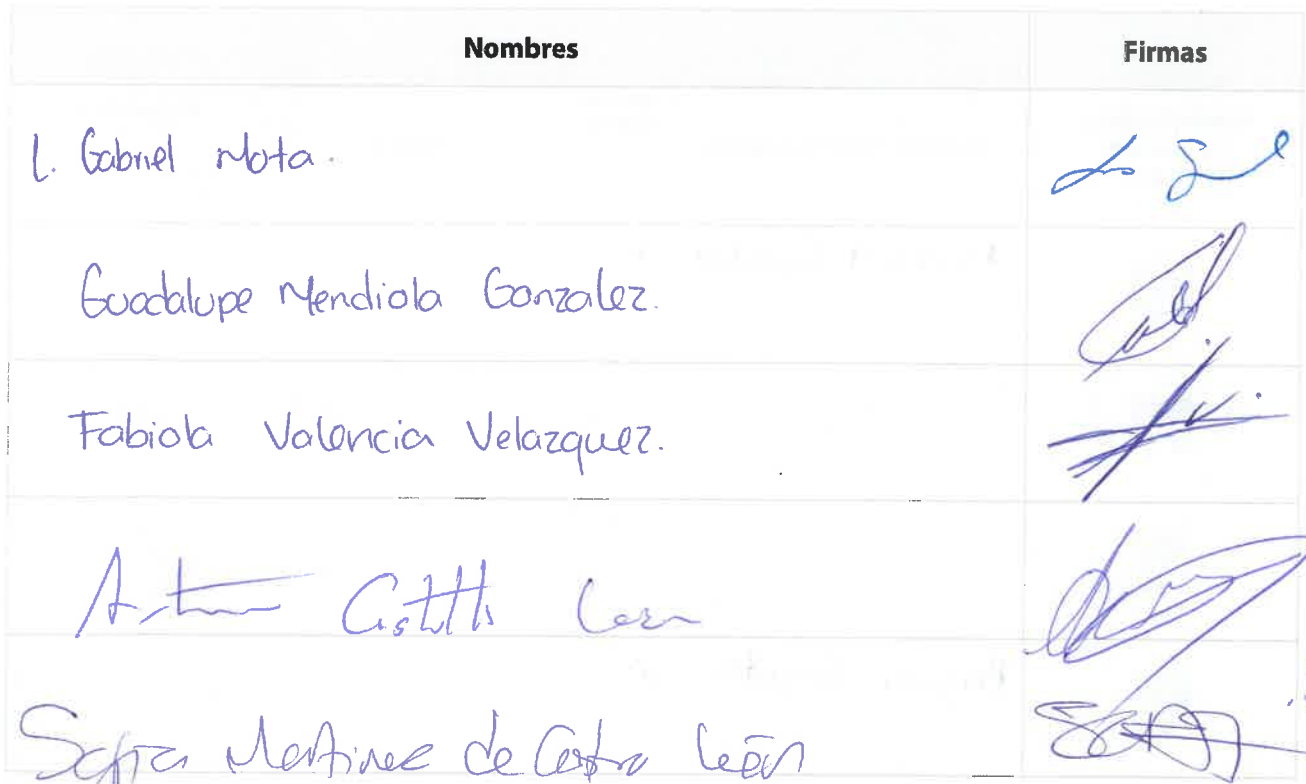 Nombres Firmas
L. Gabriel Mota.
Guadalupe Mendiola Gonzalez.
Fabiola Valencia Velazquez.
Arturo Castillo Leon
Sofia Martinez de Castro León